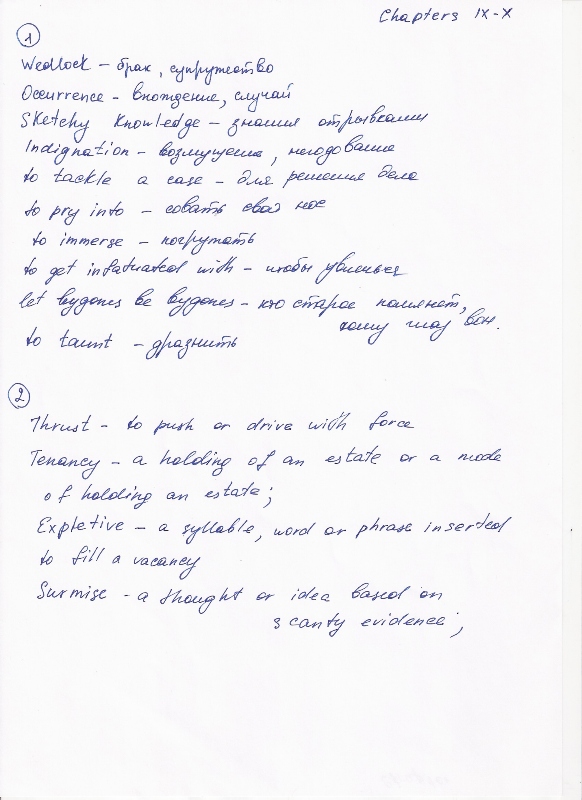 Chapters IX-X
1
Wedlock – брак, супружество
Occurrence - вхождение, случай
Sketchy knowledge – знания отрывками
Indignation - возмущение, негодование
to tackle a case – для решения дела
to pry into – совать свой нос
to immerse – погружать
to get infatuated with – чтобы увлечься
let bygones be bygones – кто старое помянет,
тому глаз вон.
to taunt – дразнить
2
Thrust - to push or drive with force
Tenancy – a holding of an estate or a mode
of holding an estate;
Expletive – a syllable, word or phrase inserted
to fill a vacancy
Surmise - a thought or idea based on
scanty evidence;